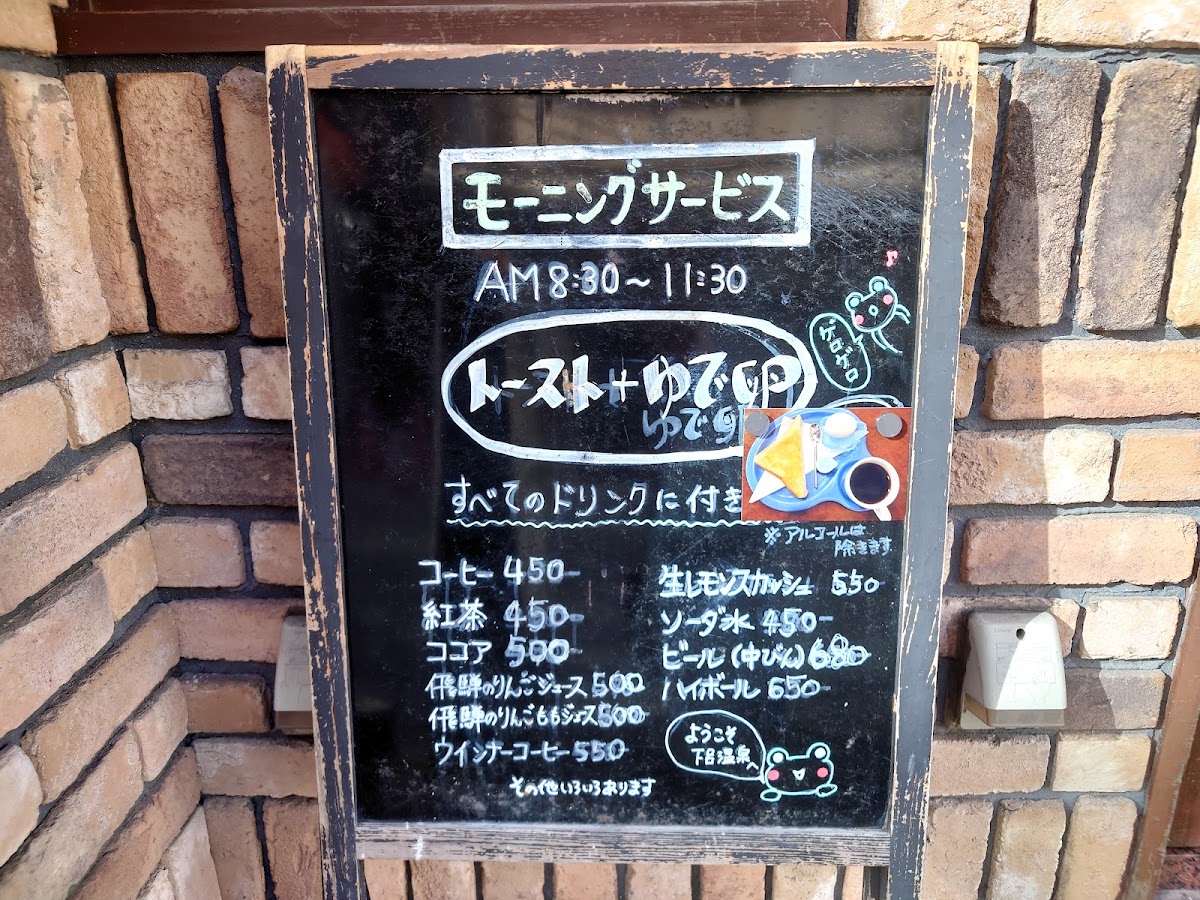 モーニングサービス
AM 8:30〜11:30
トースト+ゆで卵
ゆで卵
ゲロゲロ
すべてのドリンクに付き
※アルコールは
除きます
コーヒー 450-
紅茶 450-
ココア 500-
飛騨のりんごジュース 500-
飛騨のりんごももジュース 500-
ウインナーコーヒー 550-
その他いろいろあります
生レモンスカッシュ 550
ソーダ水 450-
ビール(中びん) 680-
ハイボール 650-
ようこそ
下呂温泉へ